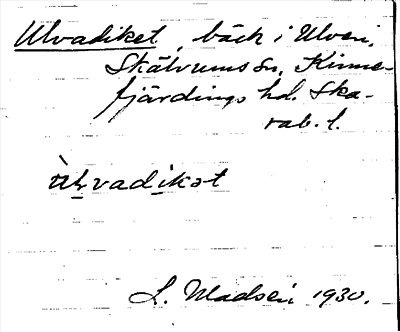 Ulvadiket, bäck i Ulven,
Skälvums sn, Kinne-
fjärdings hd. Ska-
rab. l.
L. Madsen 1930.